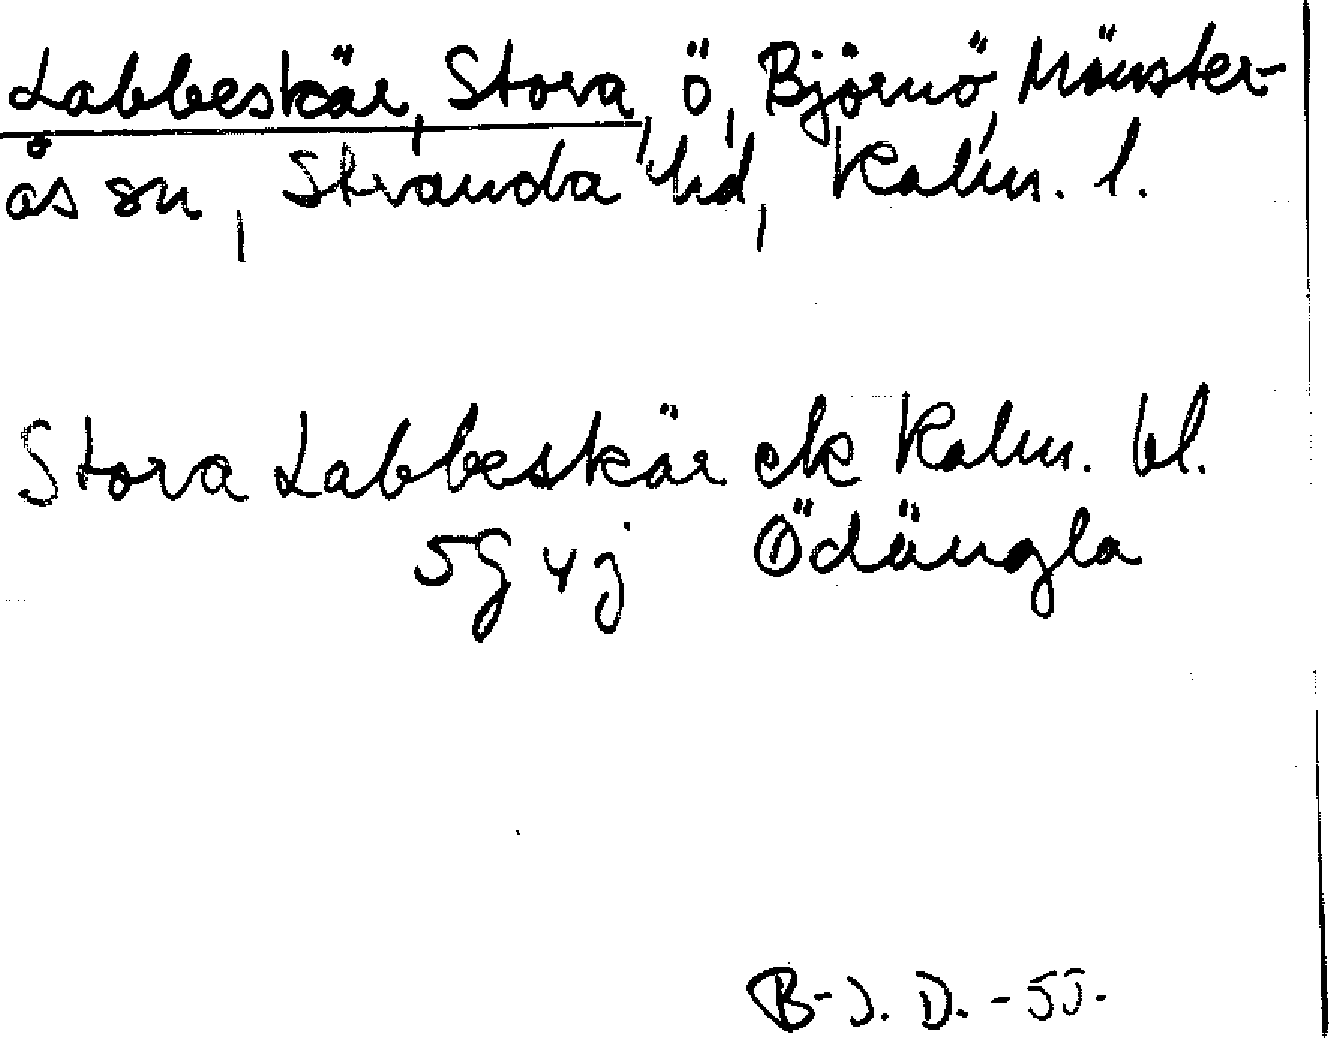 Labbeskär, Stora, ö, Björnö, Mönster-
ås sn, Stranda hd, Kalm. l.
Stora Labbeskär ek Kalm. bl.
5g 4j Ödängla
B-J. D. -55.